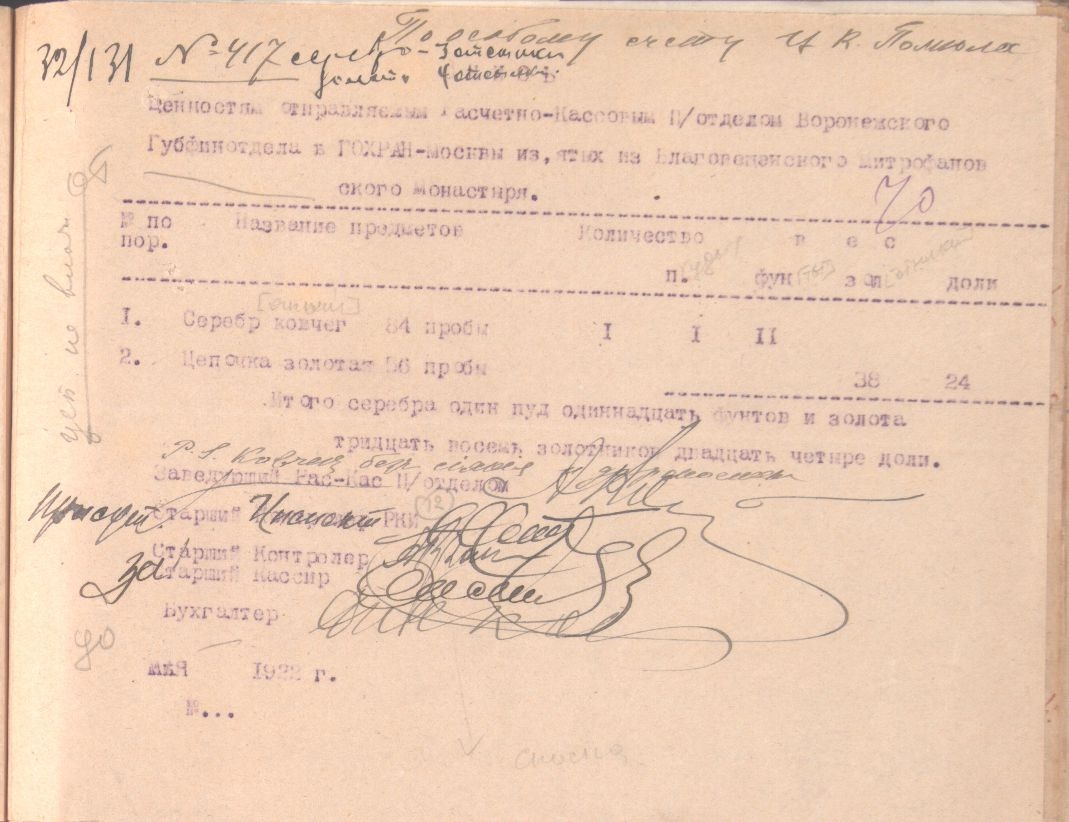 По особому счету Ц К. Помгола
32/131 № 417
Ценностям отправляемым Расчетно-Кассовым П/отделом Воронежского
Губфинотдела в ГОХРАН-Москвы из,ятых из Благовещенского Митрофанов
ского Монастиря.
70
№ по пор. Название предметов Количество в е с
п. фун зол доли
1. Серебр ковчег 84 пробы I I II
2. Цепочка золотая 56 пробы 38 24
Итого серебра один пуд одиннадцать фунтов и золота
тридцать восемь золотников двадцать четыре доли.
P.S. Ковчег без
Заведующий Рас-Кас П/отделом
Старший РКИ
(12)
Старший Контролер
За Старший Кассир
Бухгалтер
до
мая 1922 г.
№...
сноска